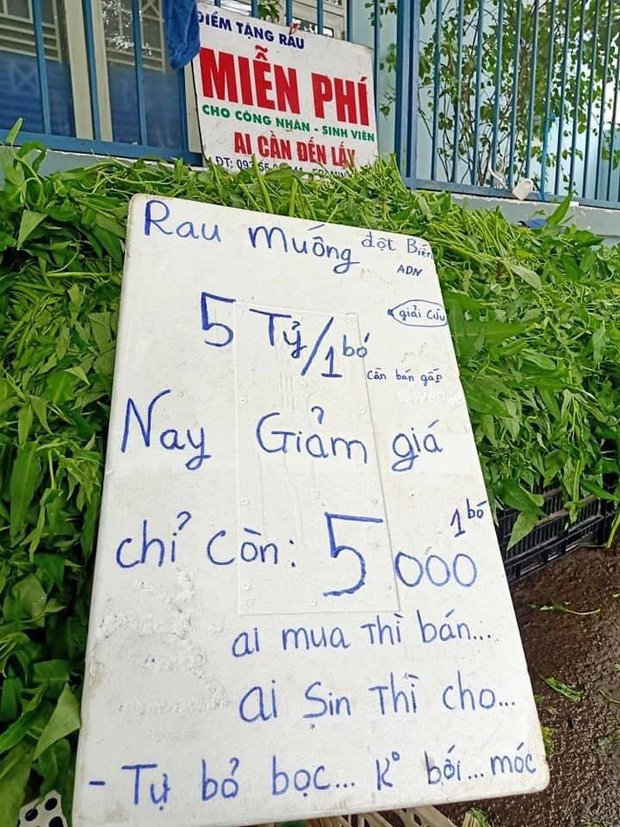 ĐIỂM TẶNG RAU
MIỄN PHÍ
CHO CÔNG NHÂN - SINH VIÊN
AI CẦN ĐẾN LẤY
ĐT:
Rau muống đột Biến
ADN
giải cứu
5 Tỷ/1 bó
cần bán gấp
Nay Giảm giá
chỉ còn: 5000 1 bó
ai mua thì bán...
ai Sin thì cho...
- Tự bỏ bọc... K° bới... móc